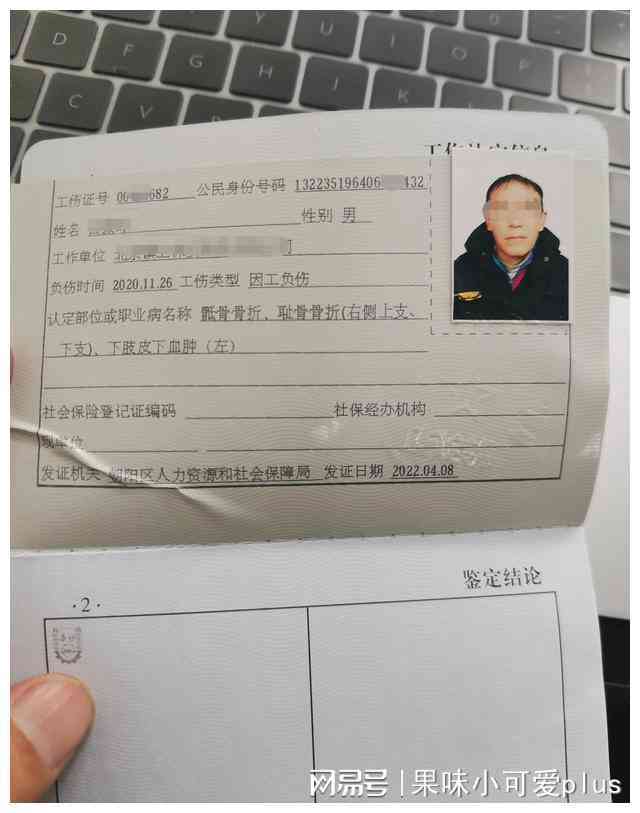 D F G H J U I O P
C V B N M K L
工伤证号 00 682 公民身份号码 132235196406 432
姓名 性别 男
工作单位
负伤时间 2020.11.26 工伤类型 因工负伤
认定部位或职业病名称 骶骨骨折、耻骨骨折(右侧上支、
下支)、下肢皮下血肿（左）
社会保险登记证编码 社保经办机构
现单位
发证机关 朝阳区人力资源和社会保障局 发证日期 2022.04.08
鉴定结论
·2·
网易号 | 果味小可爱plus